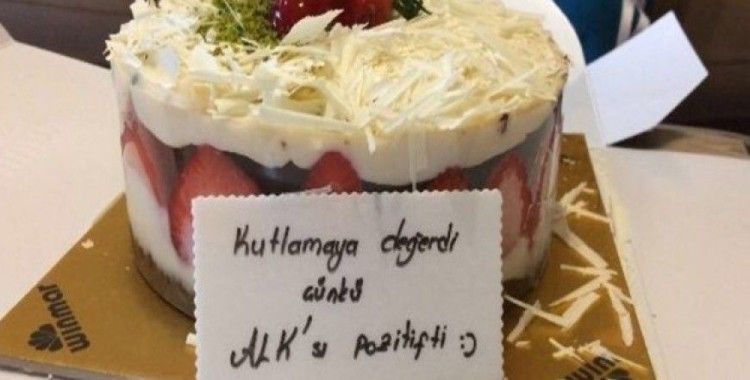 Kutlamaya değerdi
Günkü
ALK'sı pozitifti :)
winmar
winmar